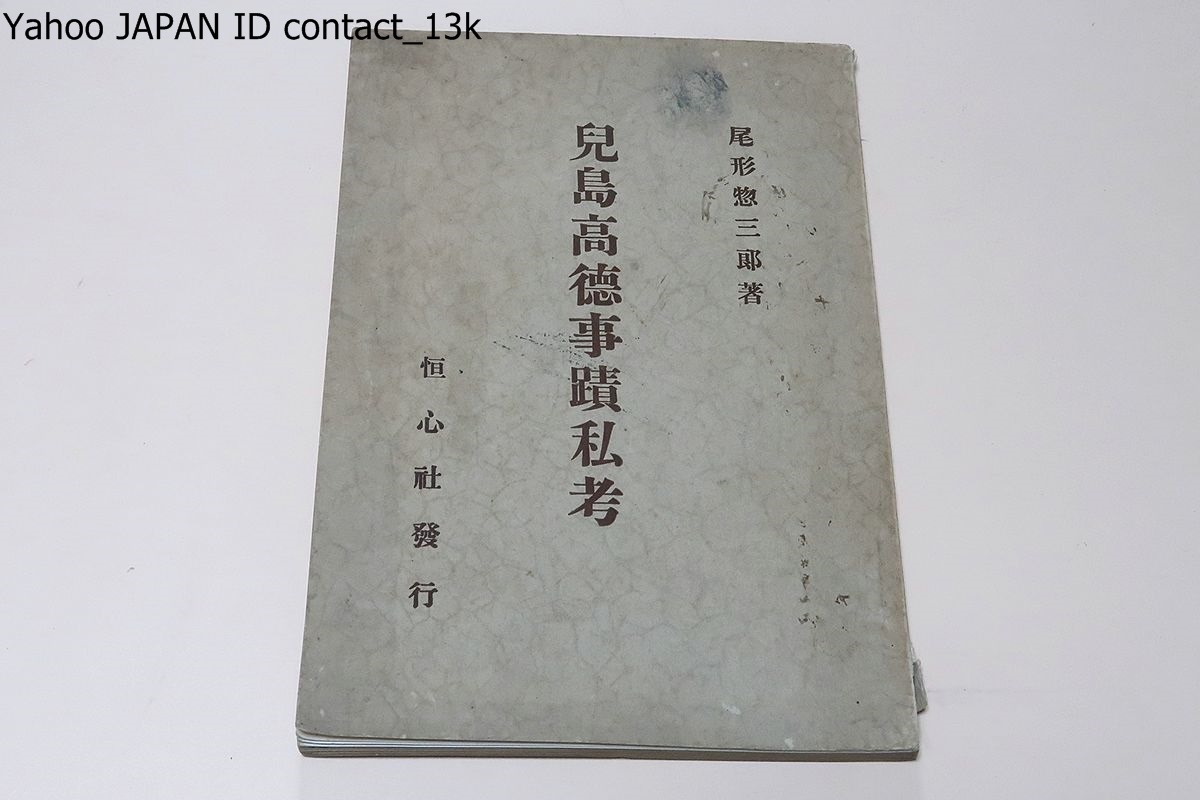 Yahoo JAPAN ID contact_13k
尾形惣三郎著
兒島高德事蹟私考
恒心社發行